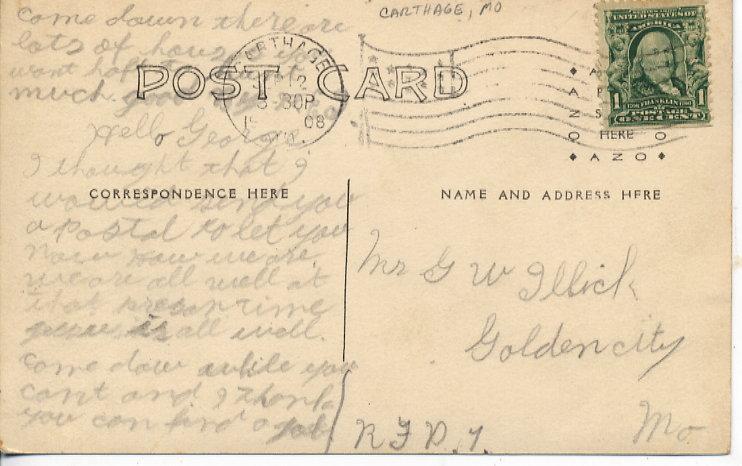 come down there are
lots of houses you
want haft to
much. good
CARTHAGE, MO
CARTHAGE
2
3 30P
08
MO.
POST CARD
UNITED STATES OF
AMERICA
1 FRANKLIN 1
POSTAGE
ONE CENT
HERE
AZO
Hello George
I thought that I
would send you
a Postal to let you
now how we are.
we are all well at
that presan time
all well.
come down while you
cant and I thank
you can find a job
CORRESPONDENCE HERE
NAME AND ADDRESS HERE
Mr G W Illick
Golden city
Mo
R.F.D. 1.